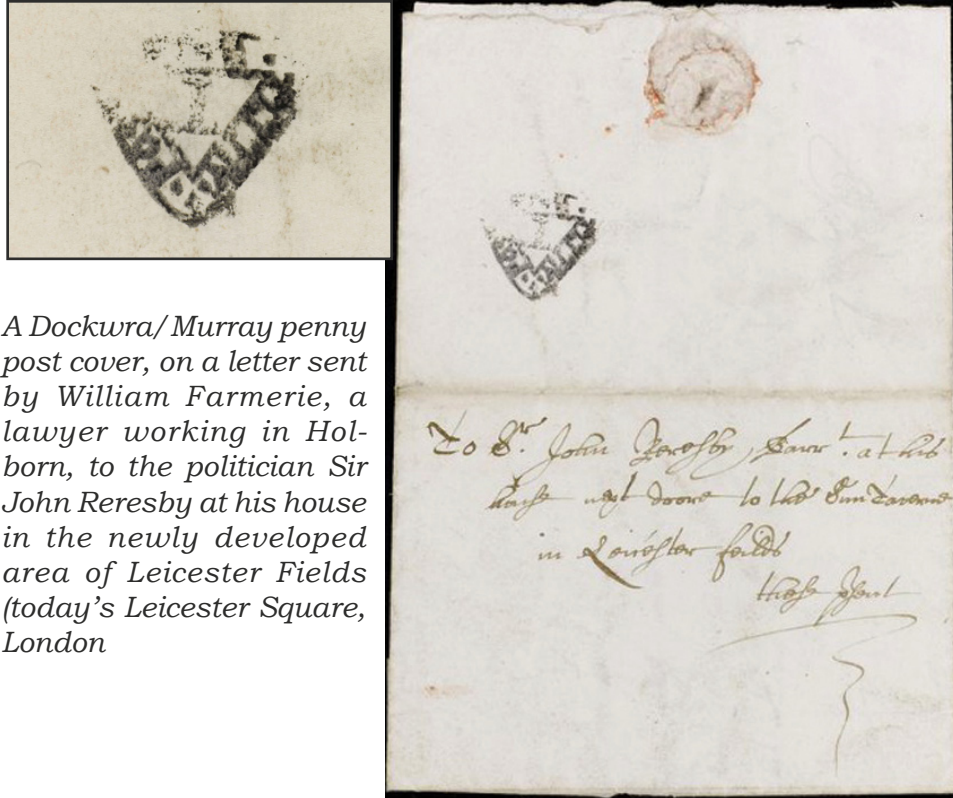 A Dockwra/Murray penny
post cover, on a letter sent
by William Farmerie, a
lawyer working in Hol-
born, to the politician Sir
John Reresby at his house
in the newly developed
area of Leicester Fields
(today’s Leicester Square,
London
To Sr. John Reresby, Barrt. at his
house next doore to the Sun Taverne
in Leicester feilds
these